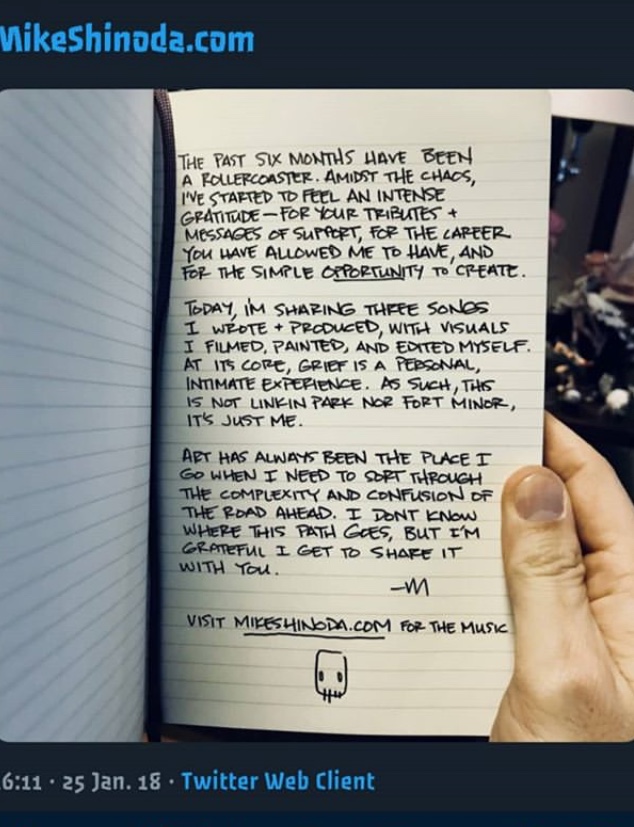 MikeShinoda.com
THE PAST SIX MONTHS HAVE BEEN
A ROLLERCOASTER. AMIDST THE CHAOS,
I'VE STARTED TO FEEL AN INTENSE
GRATITUDE—FOR YOUR TRIBUTES +
MESSAGES OF SUPPORT, FOR THE CAREER
YOU HAVE ALLOWED ME TO HAVE, AND
FOR THE SIMPLE OPPORTUNITY TO CREATE.
TODAY, I'M SHARING THREE SONGS
I WROTE + PRODUCED, WITH VISUALS
I FILMED, PAINTED, AND EDITED MYSELF.
AT ITS CORE, GRIEF IS A PERSONAL,
INTIMATE EXPERIENCE. AS SUCH, THIS
IS NOT LINKIN PARK NOR FORT MINOR,
IT'S JUST ME.
ART HAS ALWAYS BEEN THE PLACE I
GO WHEN I NEED TO SORT THROUGH
THE COMPLEXITY AND CONFUSION OF
THE ROAD AHEAD. I DON'T KNOW
WHERE THIS PATH GOES, BUT I'M
GRATEFUL I GET TO SHARE IT
WITH YOU.
—M
VISIT MIKESHINODA.COM FOR THE MUSIC
6:11 · 25 Jan. 18 · Twitter Web Client